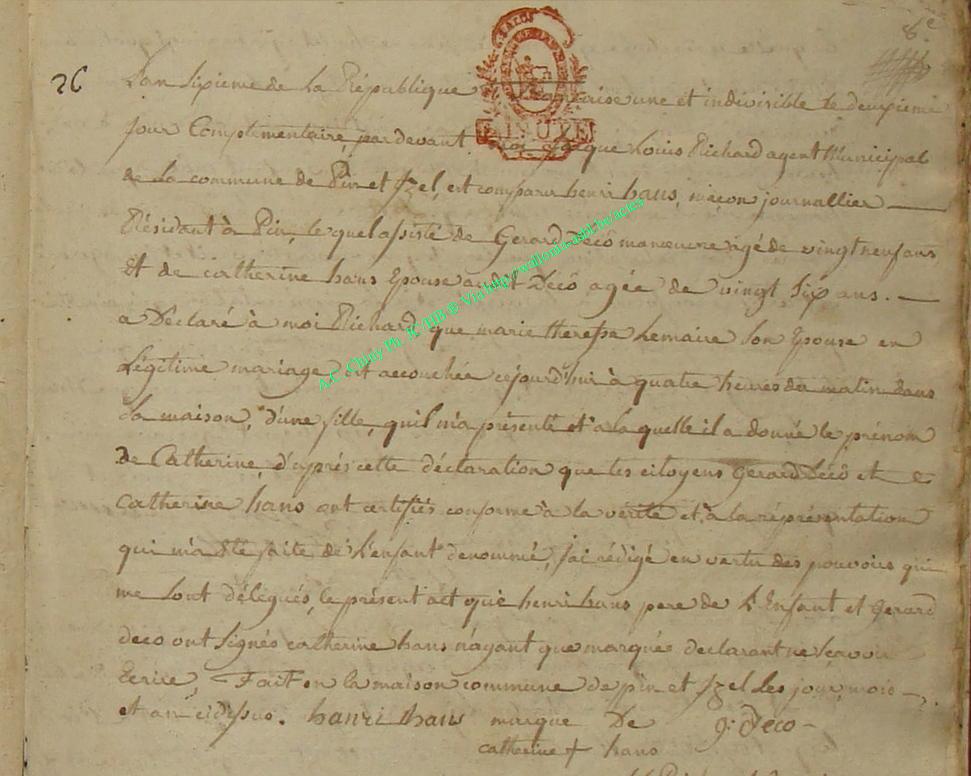 6e
26
L'an sixieme de la République françoise une et indivisible le deuxieme
jour Complementaire, pardevant moi Jacque Louis Richard agent Municipal
de la commune de Pin et Izel, est comparu henri hans, maçon journallier
Résidant à Pin, le quel assisté de Gerard Décô manœuvre agé de vingt neuf ans
Et de catherine hans Epouse audit Décô agée de vingt six ans.
a Déclaré à moi Richard que marie theresse Lemaire son Epouse en
Légitime mariage est accouchée cejourd'hui à quatre heures du matin dans
sa maison, d'une fille, qu'il m'a présenté et a la quelle il a donné le prénom
De Catherine, d'après cette déclaration que les citoyens Gerard Décô et
Catherine hans ont certifiés conforme à la verité et à la réprésentation
qui m'a été faite de l'enfant denommé, j'ai rédigé en vertu des pouvoirs qui
me sont délégués, le présent act que henri hans pere de l'Enfant et Gerard
deco ont signés catherine hans n'ayant que marqué declarant ne scavoir
Ecrire, Fait en la maison commune de pin et Izel Les jour, mois
et an cidessus. hanri hans marque De g: deco
catherine + hans
A.C. Chiny Ph. JC/HB ® Via http://wallonia-asbl.be/actes